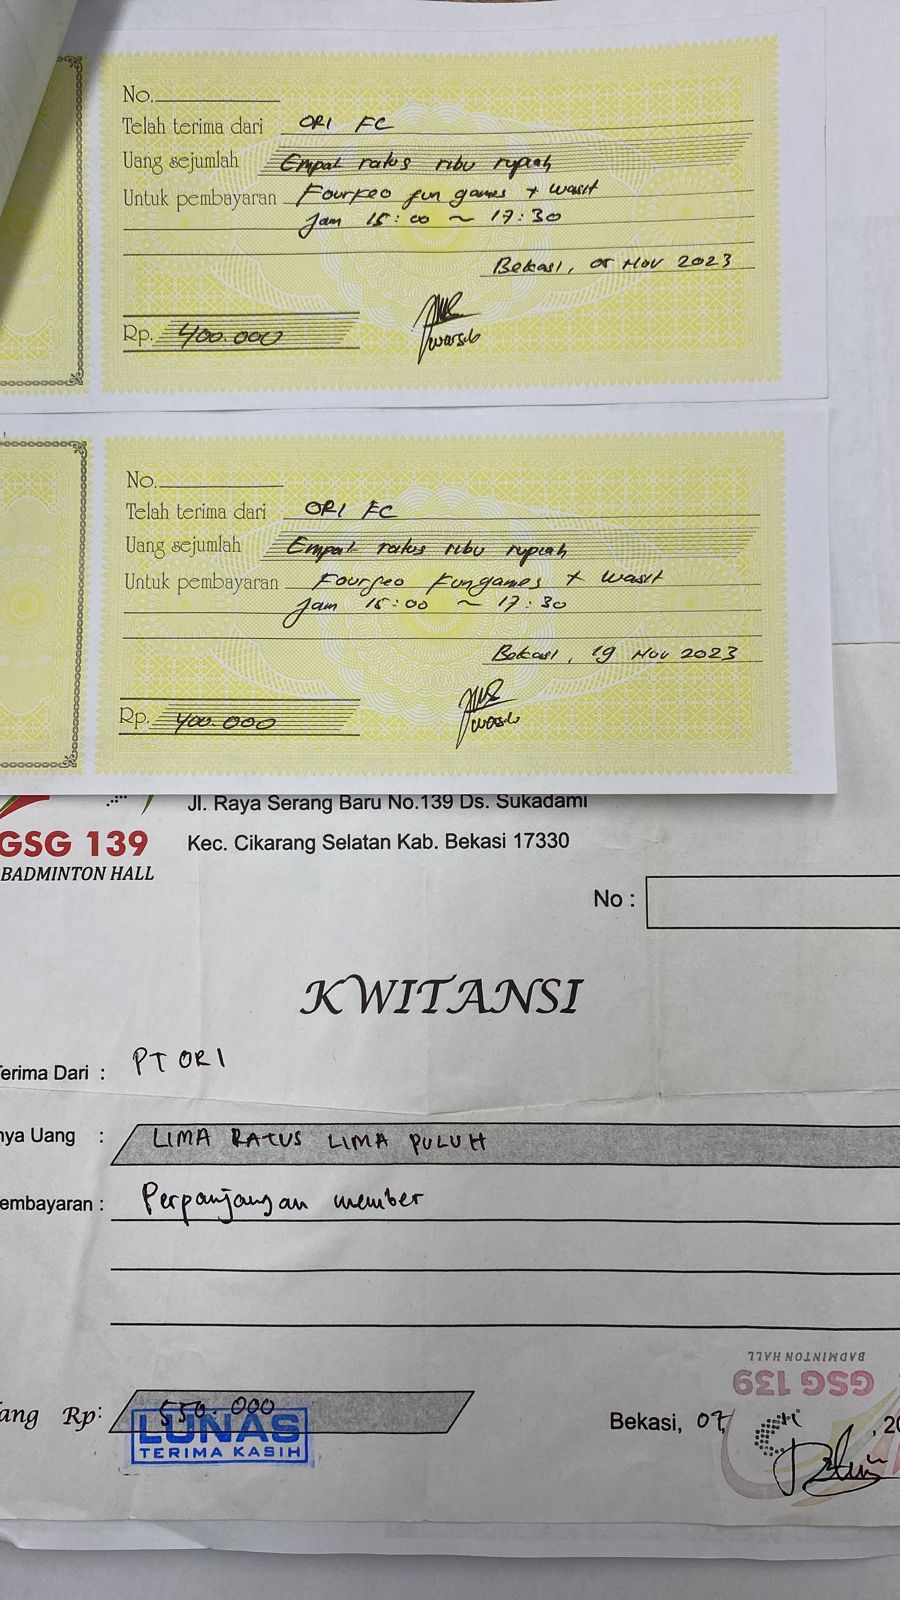 No.
Telah terima dari ORI FC
Uang sejumlah Empat ratus ribu rupiah
Untuk pembayaran Fourfeo fun games + wasit
Jam 15:00 ~ 17:30
Bekasi, 05 Nov 2023
Rp. 400.000
No.
Telah terima dari ORI FC
Uang sejumlah Empat ratus ribu rupiah
Untuk pembayaran Fourfeo Fun games + wasit
Jam 15:00 ~ 17:30
Bekasi, 19 Nov 2023
Rp. 400.000
Jl. Raya Serang Baru No.139 Ds. Sukadami
GSG 139
Kec. Cikarang Selatan Kab. Bekasi 17330
BADMINTON HALL
No :
KWITANSI
Terima Dari : PT ORI
nya Uang : LIMA RATUS LIMA PULUH
embayaran : Perpanjangan member
BADMINTON HALL
GSG 139
ang Rp: 550.000
LUNAS
TERIMA KASIH
Bekasi, 07, 20